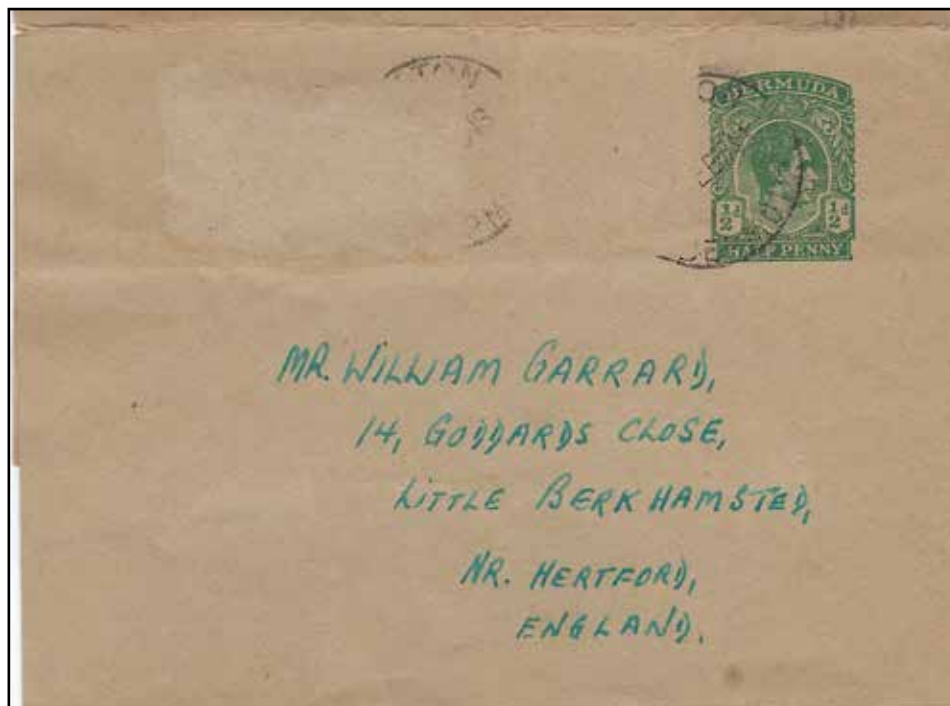 BERMUDA
½d ½d
HALF PENNY
MR. WILLIAM GARRARD,
14, GODDARDS CLOSE,
LITTLE BERKHAMSTED,
NR. HERTFORD,
ENGLAND.